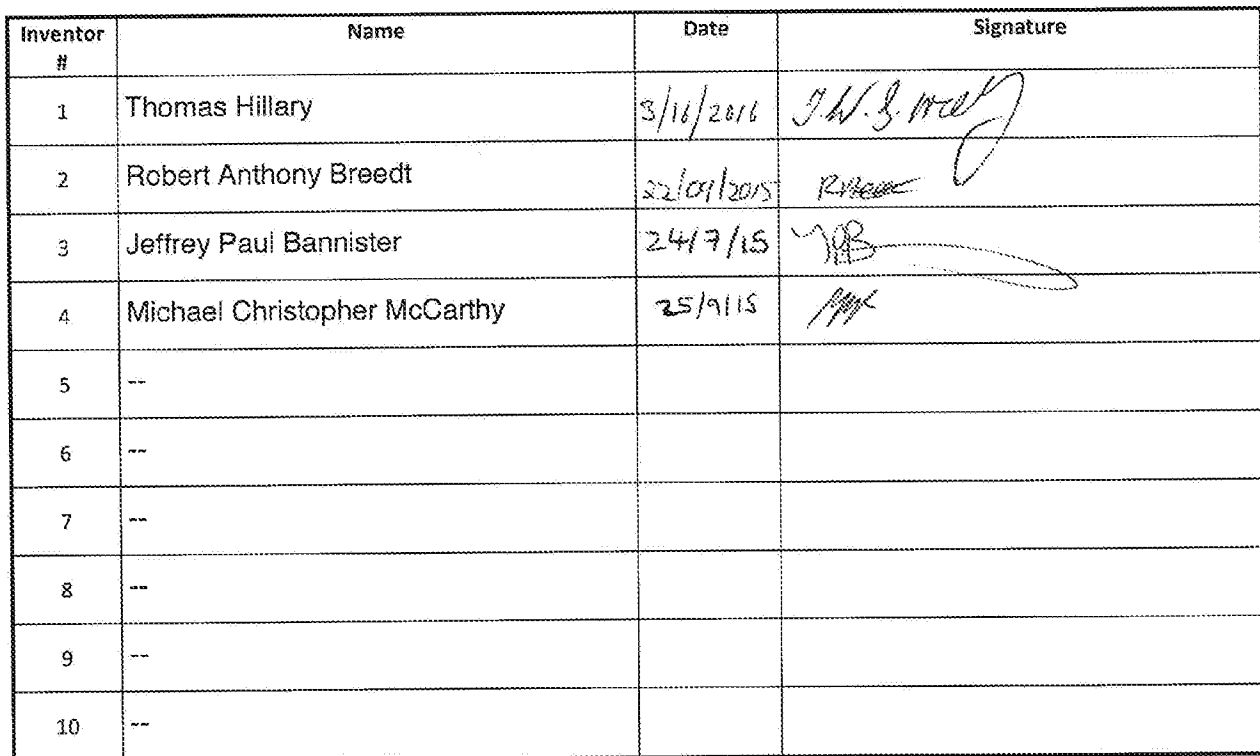 Inventor # Name Date Signature
1 Thomas Hillary 3/16/2016
2 Robert Anthony Breedt 22/09/2015
3 Jeffrey Paul Bannister 24/7/15
4 Michael Christopher McCarthy 25/9/15
5 --
6 --
7 --
8 --
9 --
10 --